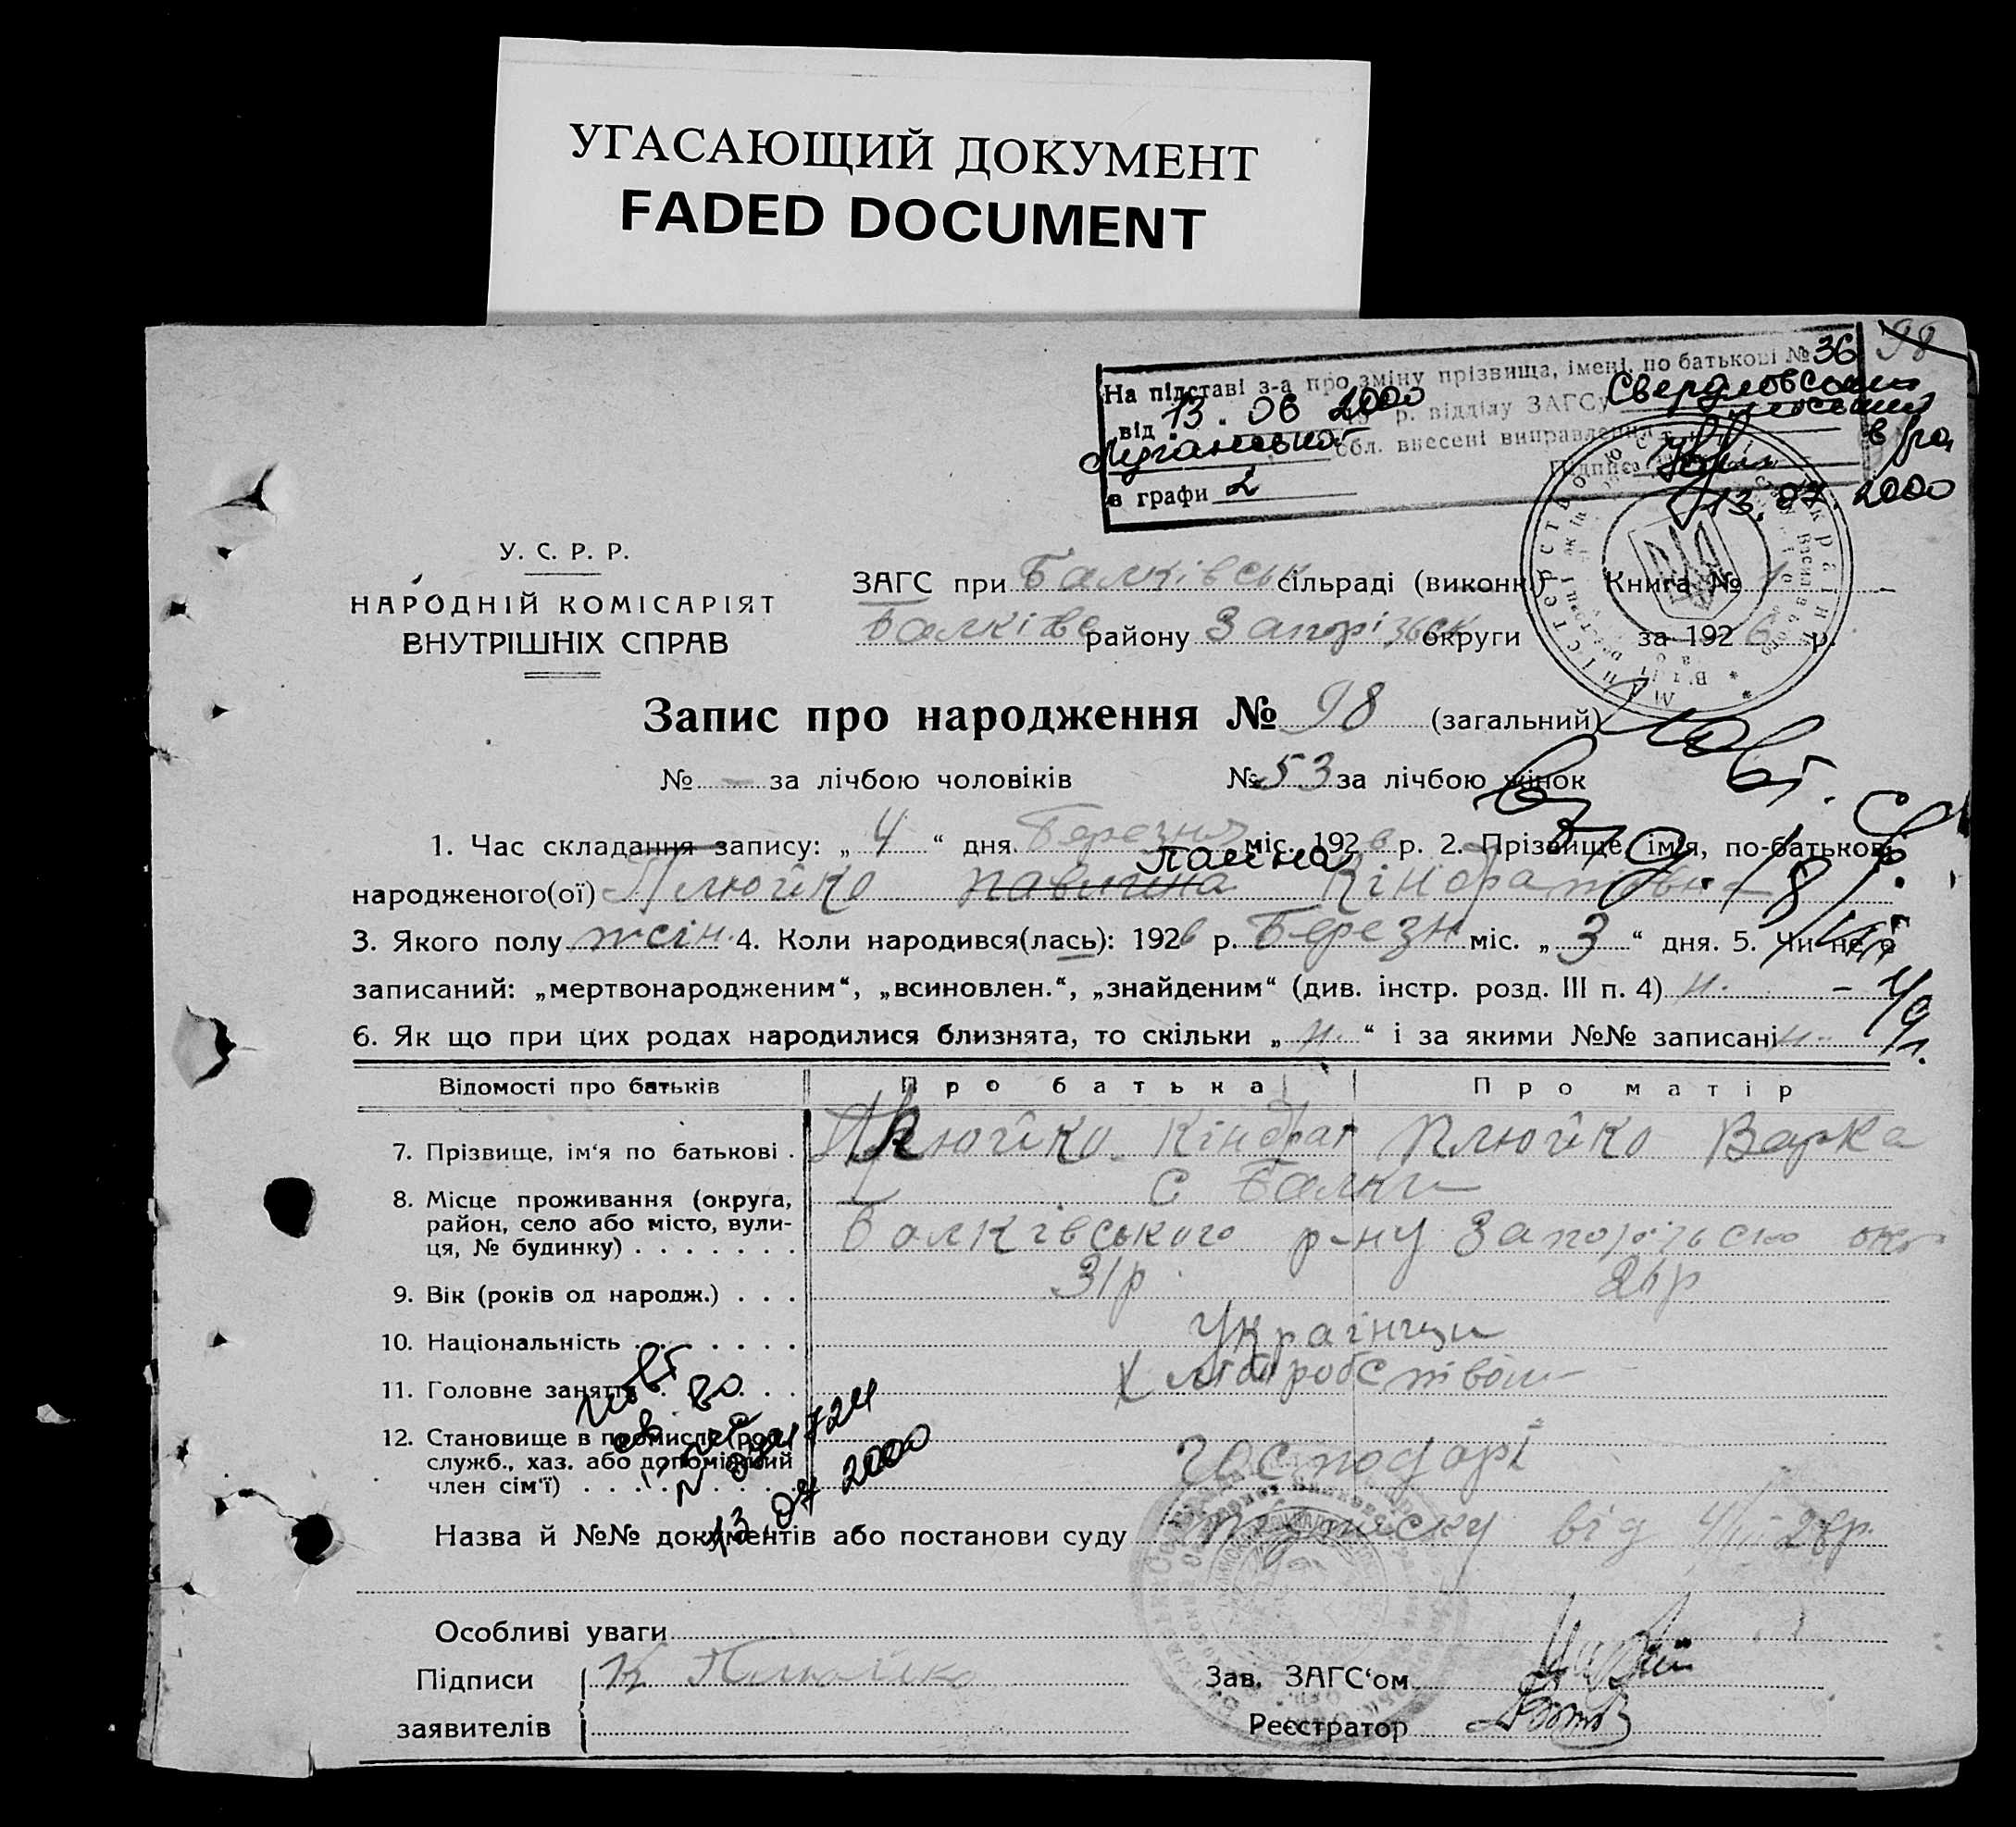 УГАСАЮЩИЙ ДОКУМЕНТ
FADED DOCUMENT
98
На підставі з-а про зміну прізвища, імені, по батькові № 36
від 13. 06 2000 р. відділу ЗАГСу Свердловського
Луганської обл. внесені виправлення
Підпис
в графи 2
13.07.2000
У. С. Р. Р.
НАРОДНІЙ КОМІСАРІЯТ
ВНУТРІШНІХ СПРАВ
ЗАГС при Балківськ сільраді (виконк.) Книга № 1
Балківс району Запорізьк округи за 1926 р.
Запис про народження № 98 (загальний)
№ – за лічбою чоловіків № 53 за лічбою жінок
1. Час складання запису: „ 4 “ дня Березня міс. 1926 р. 2. Прізвище, ім'я, по-батькові
Поліна
народженого(ої) Плюйко Павлина Кіндратовна
3. Якого полу жін. 4. Коли народився(лась): 1926 р. Березн міс. „ 3 “ дня. 5. Чи не є
записаний: „мертвонародженим“, „всиновлен.“, „знайденим“ (див. інстр. розд. III п. 4) н. –
6. Як що при цих родах народилися близнята, то скільки „ н. “ і за якими №№ записані н.
Відомості про батьків Про батька Про матір
7. Прізвище, ім'я по батькові . Плюйко Кіндрат Плюйко Варка
8. Місце проживання (округа, с Балки
район, село або місто, вули-
ця, № будинку) . . . . . . . Балківського р-ну Запорізького окр
9. Вік (років од народж.) . . . 31р. 26р
10. Національність . . . . . . . Українци
11. Головне заняття . . . . . Хліборобством
12. Становище в промислі (роб.,
служб., хаз. або допоміжний Господарі
член сім'ї) . . . . . . . . .
13.07 2000
Назва й №№ документів або постанови суду від 4/III 26р.
Особливі уваги
Підписи К Плюйко Зав. ЗАГС'ом
заявителів Реєстратор